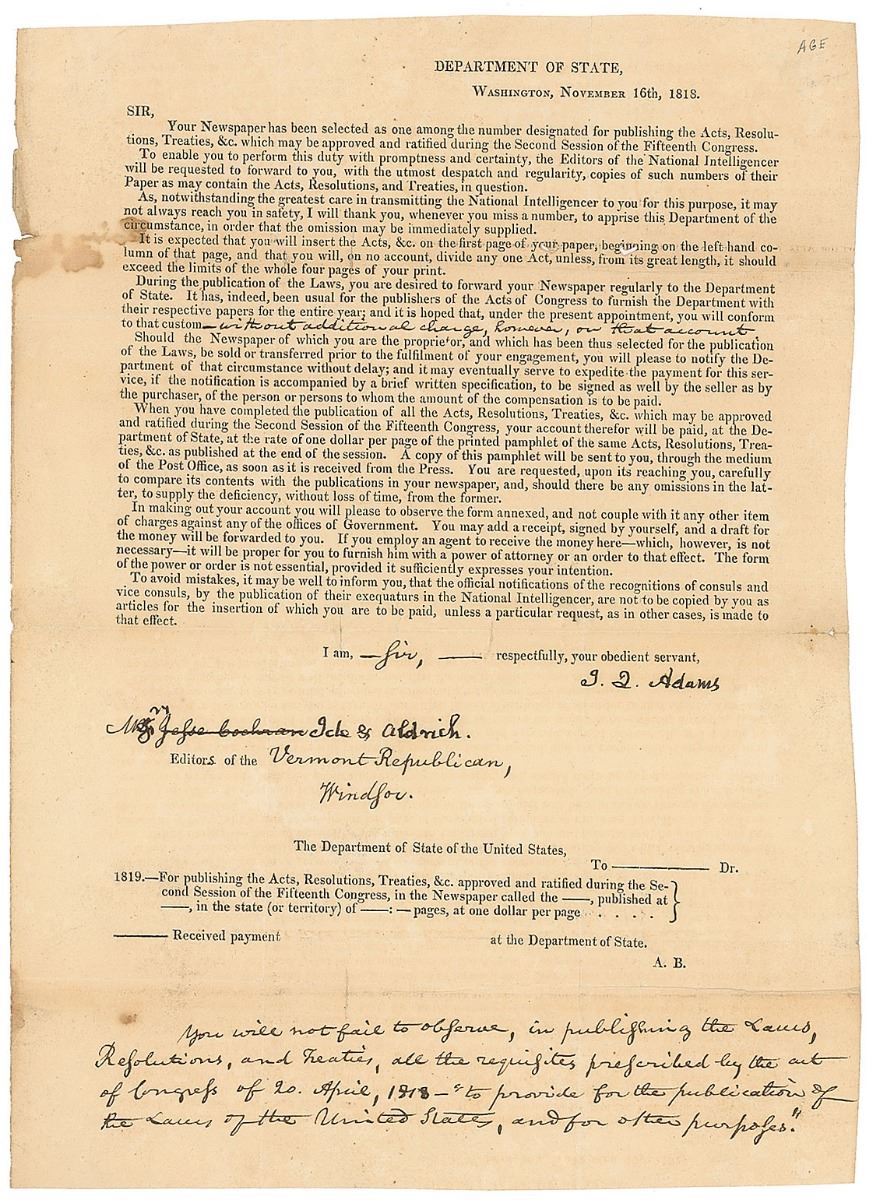 AGE
DEPARTMENT OF STATE,
WASHINGTON, NOVEMBER 16th, 1818.
SIR,
Your Newspaper has been selected as one among the number designated for publishing the Acts, Resolu-
tions, Treaties, &c. which may be approved and ratified during the Second Session of the Fifteenth Congress.
To enable you to perform this duty with promptness and certainty, the Editors of the National Intelligencer
will be requested to forward to you, with the utmost despatch and regularity, copies of such numbers of their
Paper as may contain the Acts, Resolutions, and Treaties, in question.
As, notwithstanding the greatest care in transmitting the National Intelligencer to you for this purpose, it may
not always reach you in safety, I will thank you, whenever you miss a number, to apprise this Department of the
circumstance, in order that the omission may be immediately supplied.
It is expected that you will insert the Acts, &c. on the first page of your paper, beginning on the left hand co-
lumn of that page, and that you will, on no account, divide any one Act, unless, from its great length, it should
exceed the limits of the whole four pages of your print.
During the publication of the Laws, you are desired to forward your Newspaper regularly to the Department
of State. It has, indeed, been usual for the publishers of the Acts of Congress to furnish the Department with
their respective papers for the entire year; and it is hoped that, under the present appointment, you will conform
to that custom—without additional charge, however, on that account
Should the Newspaper of which you are the proprietor, and which has been thus selected for the publication
of the Laws, be sold or transferred prior to the fulfilment of your engagement, you will please to notify the De-
partment of that circumstance without delay; and it may eventually serve to expedite the payment for this ser-
vice, if the notification is accompanied by a brief written specification, to be signed as well by the seller as by
the purchaser, of the person or persons to whom the amount of the compensation is to be paid.
When you have completed the publication of all the Acts, Resolutions, Treaties, &c. which may be approved
and ratified during the Second Session of the Fifteenth Congress, your account therefor will be paid, at the De-
partment of State, at the rate of one dollar per page of the printed pamphlet of the same Acts, Resolutions, Trea-
ties, &c. as published at the end of the session. A copy of this pamphlet will be sent to you, through the medium
of the Post Office, as soon as it is received from the Press. You are requested, upon its reaching you, carefully
to compare its contents with the publications in your newspaper, and, should there be any omissions in the lat-
ter, to supply the deficiency, without loss of time, from the former.
In making out your account you will please to observe the form annexed, and not couple with it any other item
of charges against any of the offices of Government. You may add a receipt, signed by yourself, and a draft for
the money will be forwarded to you. If you employ an agent to receive the money here—which, however, is not
necessary—it will be proper for you to furnish him with a power of attorney or an order to that effect. The form
of the power or order is not essential, provided it sufficiently expresses your intention.
To avoid mistakes, it may be well to inform you, that the official notifications of the recognitions of consuls and
vice consuls, by the publication of their exequaturs in the National Intelligencer, are not to be copied by you as
articles for the insertion of which you are to be paid, unless a particular request, as in other cases, is made to
that effect.
I am, — Sir, — respectfully, your obedient servant,
J. Q. Adams
Jesse Cochran Ide & Aldrich.
Editors of the Vermont Republican,
Windsor.
The Department of State of the United States,
To ——— Dr.
1819.—For publishing the Acts, Resolutions, Treaties, &c. approved and ratified during the Se-
cond Session of the Fifteenth Congress, in the Newspaper called the ——, published at
——, in the state (or territory) of ——: — pages, at one dollar per page . . . .
——— Received payment at the Department of State.
A. B.
You will not fail to observe, in publishing the Laws,
Resolutions, and Treaties, all the requisites prescribed by the act
of Congress of 20. April, 1818—"to provide for the publication of
the Laws of the United States, and for other purposes."